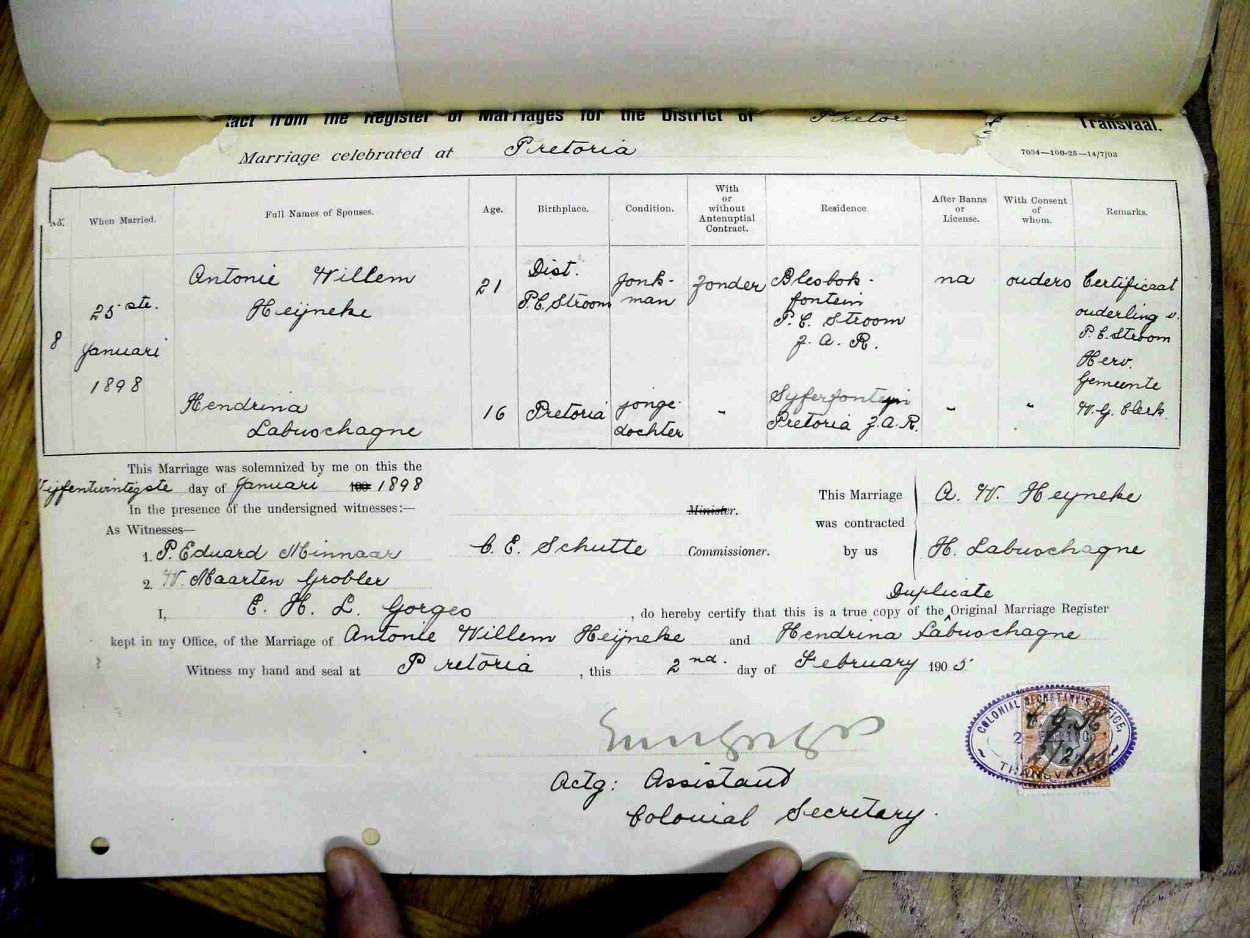 act from the Register of Marriages for the District of Pretor Transvaal.
Marriage celebrated at Pretoria 7034—100-25—14/7/03
No. When Married. Full Names of Spouses. Age. Birthplace. Condition. With or without Antenuptial Contract. Residence. After Banns or License. With Consent of whom. Remarks.
8 25 ste. Januari 1898 Antonie Willem Heijneke 21 Dist. P.C. Stroom Jonk-man zonder Blesbok-fontein P.C. Stroom Z.A.R. na ouders Certificaat ouderling v. P.C. Stroom Herv. Gemeente W.G. Clerk.
Hendrina Labuschagne 16 Pretoria jonge dochter " Syferfontein Pretoria Z.A.R. " "
This Marriage was solemnized by me on this the
Vijfentwintigste day of Januari 190 1898
In the presence of the undersigned witnesses:—
Minister.
As Witnesses—
1. P. Eduard Minnaar C. E. Schutte Commissioner.
2. W. Maarten Grobler
This Marriage was contracted by us
A. W. Heyneke
H. Labuschagne
Duplicate
I, E. H. L. Gorges, do hereby certify that this is a true copy of the Original Marriage Register
kept in my Office, of the Marriage of Antonie Willem Heijneke and Hendrina Labuschagne
Witness my hand and seal at Pretoria, this 2nd. day of February 1905
Actg: Assistant
Colonial Secretary.
COLONIAL SECRETARY'S OFFICE,
TRANSVAAL